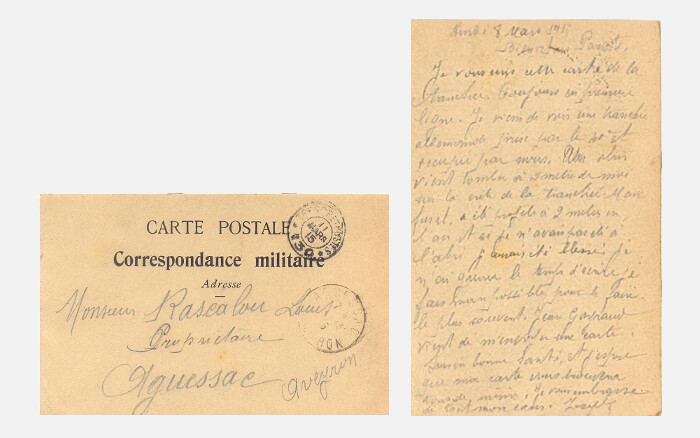 CARTE POSTALE
Correspondance militaire
Adresse
Monsieur Rascalou Louis
Propriétaire
Aguessac
Aveyron
11
MARS
15
Lundi 8 Mars 191
Parents,
Je vous envoie cette carte de la
tranchée. Toujours en première
ligne. Je viens de voir une tranchée
allemande prise par le et
occupée par nous. Un obus
vient tomber à 2 mètres de moi
sur la crête de la tranchée. Mon
fusil a été projeté à 2 mètres en
l'air et si je n'avais pas été à
l'abri j'aurais été blessé. Je
n'ai guère le temps d'écrire je
fais mon possible pour le faire
le plus souvent. Jean
vient de m'envoyer une carte.
Suis en bonne santé, et j'espère
que ma carte vous trouvera
tous de même. Je vous embrasse
de tout mon cœur. Joseph